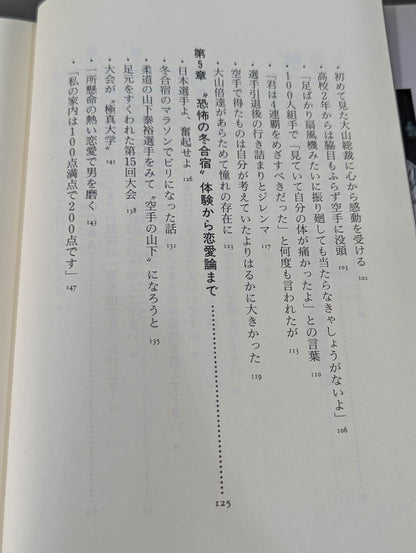 ・初めて見た大山総裁に心から感動を受ける 101
・高校2年からは脇目もふらず空手に没頭 103
・「足ばかり扇風機みたいに振り廻しても当たらなきゃしょうがないよ」 106
・100人組手で「見ていて自分の体が痛かったよ」との言葉 110
・「君は4連覇をめざすべきだった」と何度も言われたが 113
・選手引退後の行き詰まりとジレンマ 117
・空手で得たものは自分が考えていたよりはるかに大きかった 119
・大山倍達があらためて憧れの存在に 123
第5章 〝恐怖の冬合宿〟体験から恋愛論まで 125
・日本選手よ、奮起せよ 126
・冬合宿のマラソンでビリになった話 131
・柔道の山下泰裕選手をみて〝空手の山下〟になろうと 135
・足元をすくわれた第15回大会 138
・大会が〝極真大学〟 141
・一所懸命の熱い恋愛で男を磨く 143
・「私の家内は100点満点で200点です」 147